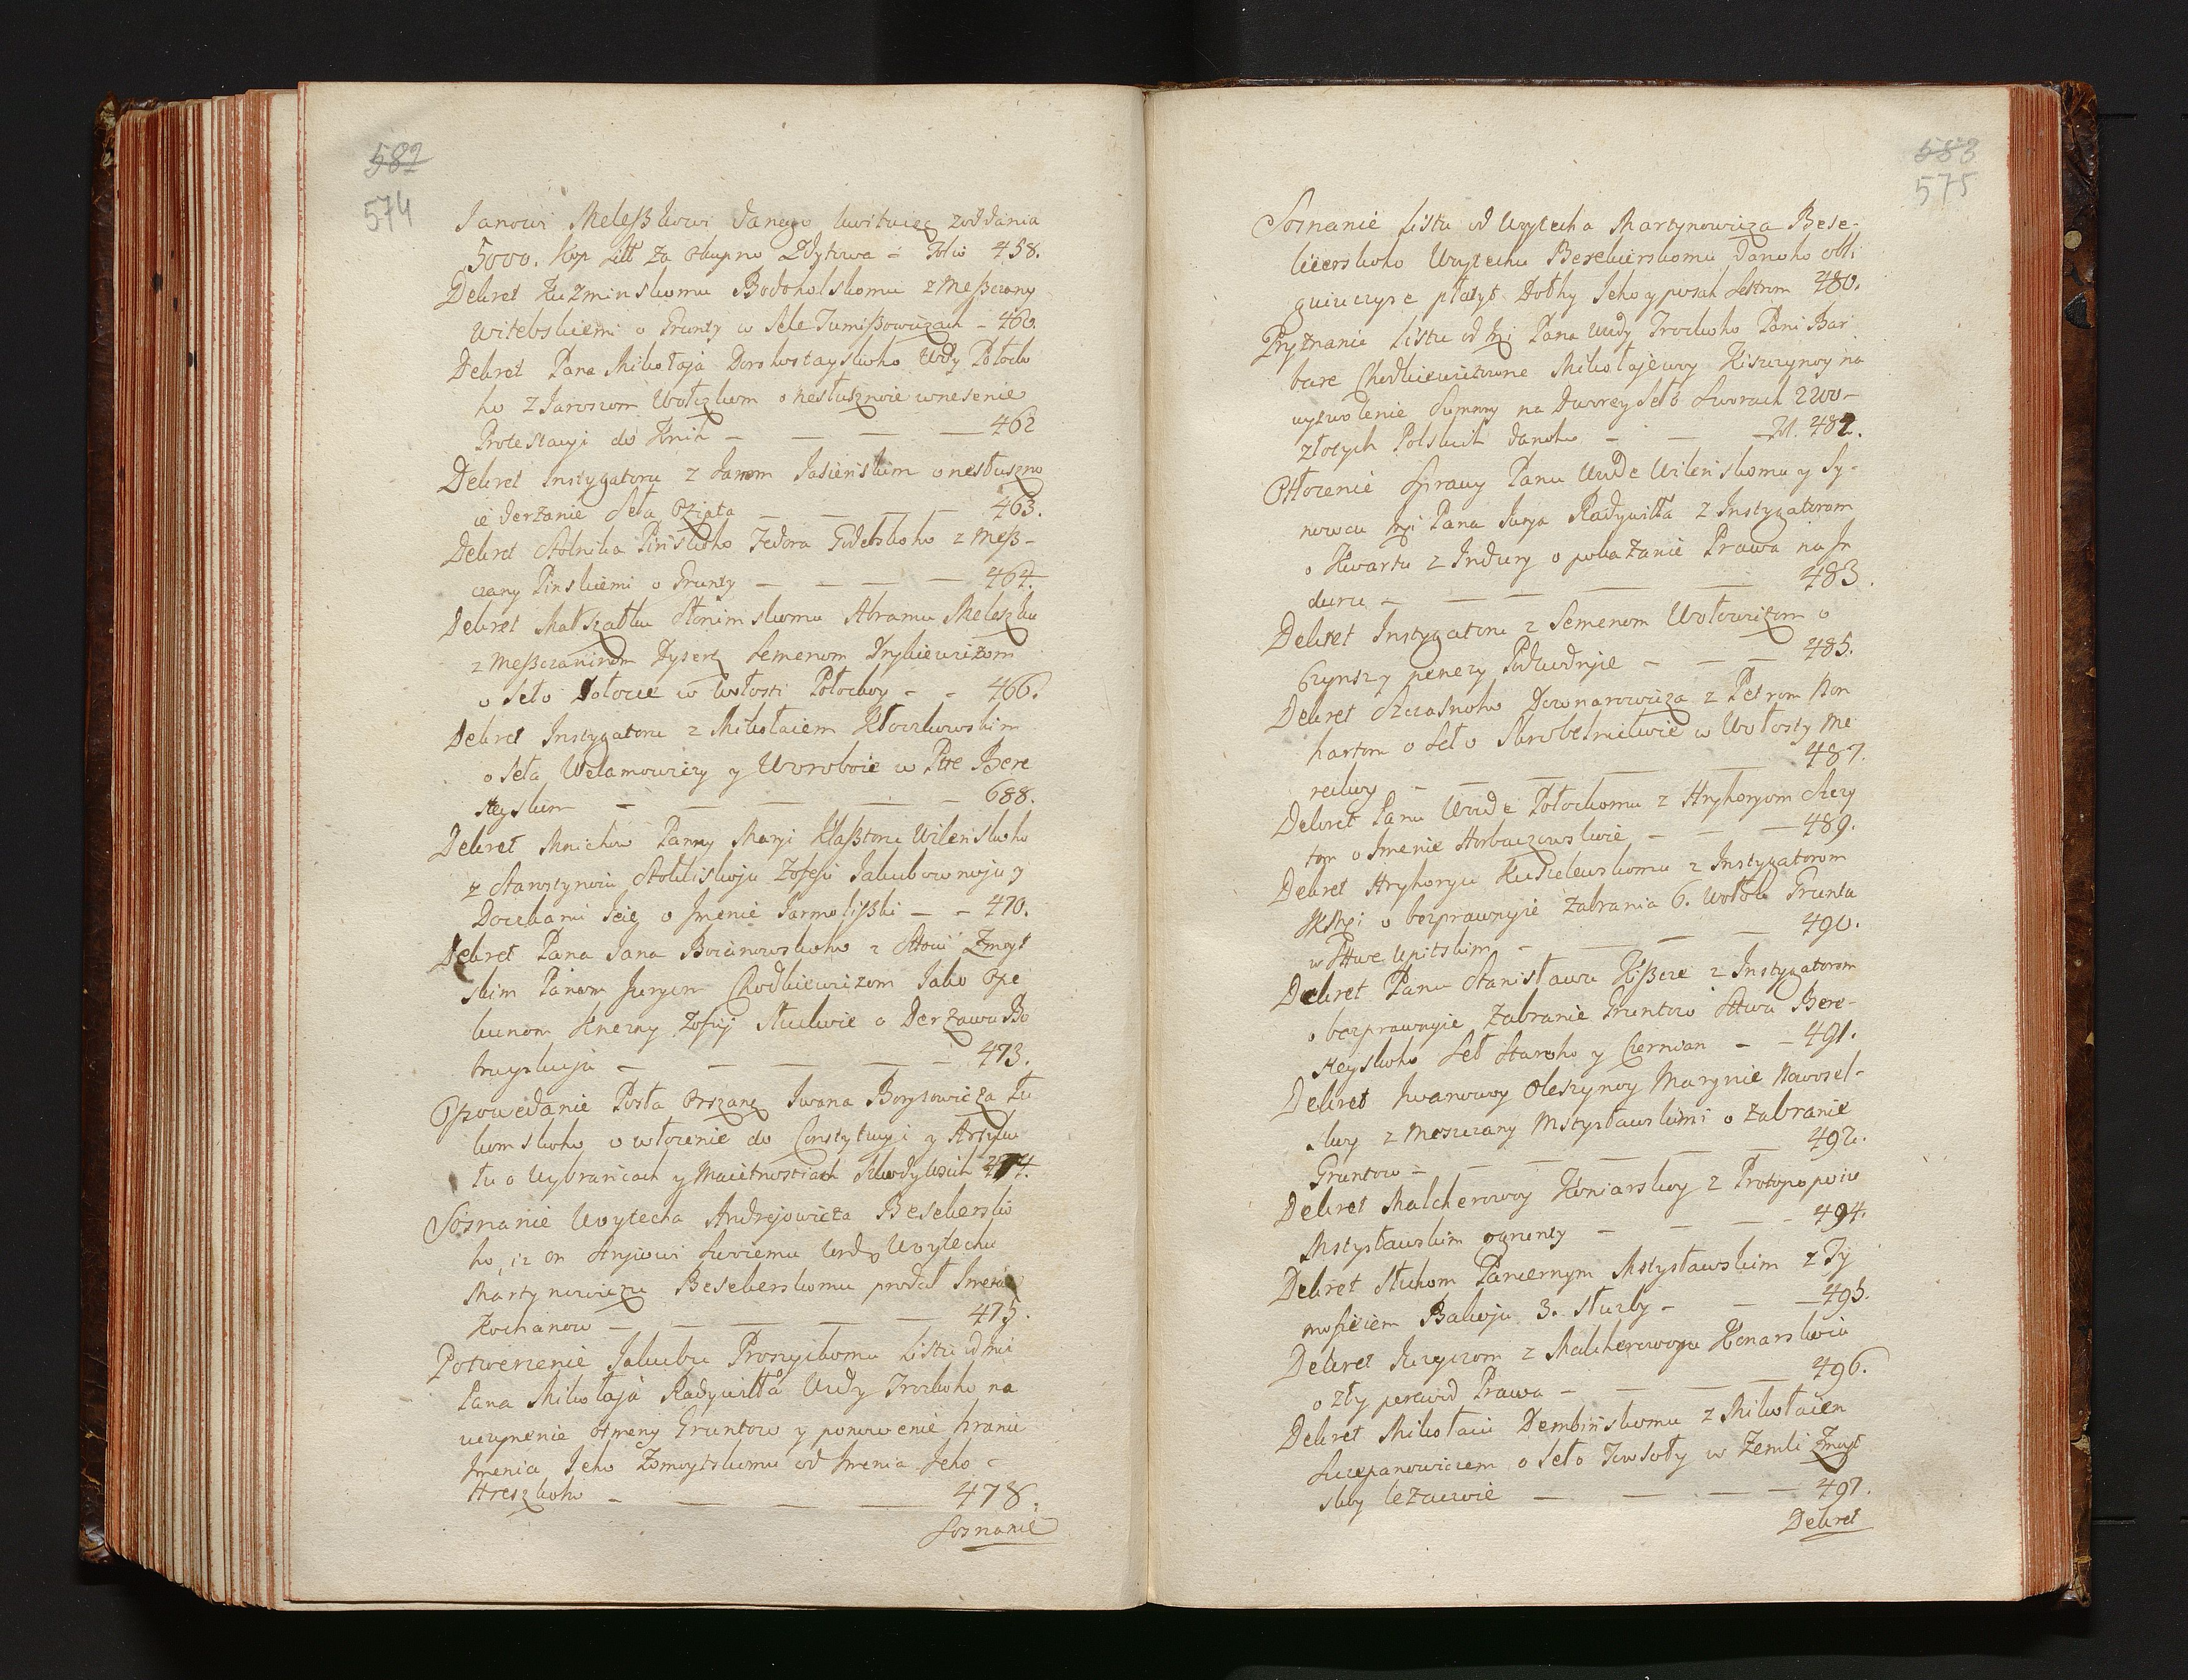 582
574
Janowi Meleßkowi danego kwituiąc z oddania
5000. Kop Litt za okupno Zdytowa – Foliō 458.
Dekret Kuzminskomu Bodoholskomu z Meßczany
Witebskiemi o Grunty w Sele Tumißowiczach – 460.
Dekret Pana Mikołaja Dorohostayskoho Wdy Połocko
ho z Jarosom Wołczkom o nesłusznoie wnesenie
Protestacyi do Knih – – – – 462
Dekret Instygatoru z Janom Jasieńskim o nesłuszno
ie derżanie Seła Oziata – – – – 463.
Dekret Stolnika Pinskoho Fedora Godebskoho z Meß-
czany Pinskiemi o Grunty – – – – 464.
Dekret Marszałku Słonimskomu Abramu Meleszku
z Meßczaninom Dysere Semenom Inykiewiczom
o Seło Dołocie w Wołosti Połockoy – – 466.
Dekret Instygatoru z Mikołaiem Kłoczkowskim
o Seła Welamowiczy y Woroboie w Ptte Bere
steyskim – – – – – 688.
Dekret Mnichow Panny Maryi Klasztoru Wileńskoho
z Starostynoiu Stokliskoju Zofeju Jakubownoju y
Doczkami Jeie o Jmenie Jarmolißki – – 470.
Dekret Pana Jana Bocianowskoho z Sttoiu Zmoyt
skim Panom Jurjem Chodkiewiczom Jako Ope
kunom Knezny Zofiej Słuckoie o Derżawu Bo
bruyskuju – – – – – 473.
Opowedanie Posła Orszanz Jwana Borysowicza Łu
komskoho o włożenie do Constytucyi y Artyku
łu o Wybrańcach y Maietnostiach Szkodyłkach 474.
Soznanie Woytecha Andrejowicza Besekersko
ho, iż on Stryiowi Swoiemu Urodz Woytechu
Martynowiczu Besekerskomu prodał Jmenie
Kochanow – – – – – 475.
Potwerżenie Jakubu Prozyckomu Listu od mi
Pana Mikołaja Radywiłła Wdy Trockoho na
uczynenie otmeny Gruntow y ponowenie hranic
Jmenia Jeho Zomoytskomu od Jmenia Jeho
Hreszkoho – – – – 478.
Soznanie
583
575
Soznanie Listu od Woytecha Martynowicza Bese-
kierskoho Woytechu Besekierskomu danoho obli
guiuczyse płatyt Dołhy Jeho y posah Sestram 480.
Pryznanie Listu od Jmi Pana Wdy Trockoho Pani Bar
bare Chodkiewiczowne Mikołajewoy Kiszczynoy na
wyzwolenie Summy na Dworey Seło Sworach 2200 –
złotych Polskich danoho – – – Fol. 482.
Otłożenie Sprawy Panu Wdde Wilenskomu y Sy-
nowcu Jmi Pana Jurja Radywiłła z Instygatorom
o Kwartu z Jndury o pokazanie Prawa na Jn
duru – – – – – 483.
Dekret Instygatoru z Semenom Wołowiczom o
Czynszy penezy Podwodnyie – – – 485.
Dekret Szczasnoho Downarowicza z Petrom Kon
hartom o Seło Skrobelnickoie w Wołosty Me
reckoy – – – – – 487.
Dekret Panu Woide Połockomu z Hryhoryom Szczy
tom o Jmenie Horbaczewskoie – – – 489.
Dekret Hryhoryu Kudelewskomu z Instygatorom
JKMci o bezprawnyie zabrania 6. Wołok Gruntu
w Pttwe Upitskim – – – – 490.
Dekret Panu Stanisławu Kißcze z Instygatorom
o bezprawnyie zabranie Gruntow Sttwa Bere-
steyskoho Seł Staroho y Czernian – – 491.
Dekret Jwanowoy Oleszynoy Marynie Nowosel-
skoy z Meszczany Mstysławskimi o zabranie
Gruntow – – – – – 492.
Dekret Malcherowoy Koniarskoy z Protopopoiu
Mstysławskim o grunty – – – – 494.
Dekret Słuham Pancernym Mstysławskim z Ty
mofieiem Bakoju 3. służby – – – 495.
Dekret Jurjczom z Malcherowoju Konarskoiu
o zły perewod Prawa – – – – 496.
Dekret Mikołaiu Dembińskomu z Mikołaiem
Szczepanowiczem o Seło Jowsoły w Zemli Zmoyt
skoy leżaczoie – – – – 497.
Dekret